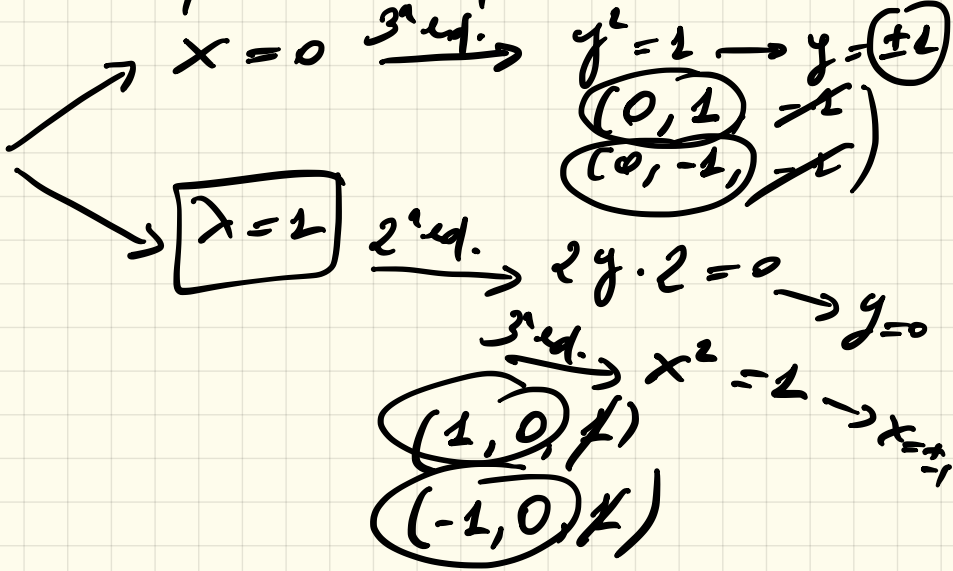 x = 0 3ª eq. → y² = 1 → y = ±1
(0, 1, -1)
(0, -1, -1)
λ = 1 2ª eq. → 2y · 2 = 0 → y = 0
3ª eq. → x² = 1 → x = ±1
(1, 0, 1)
(-1, 0, 1)